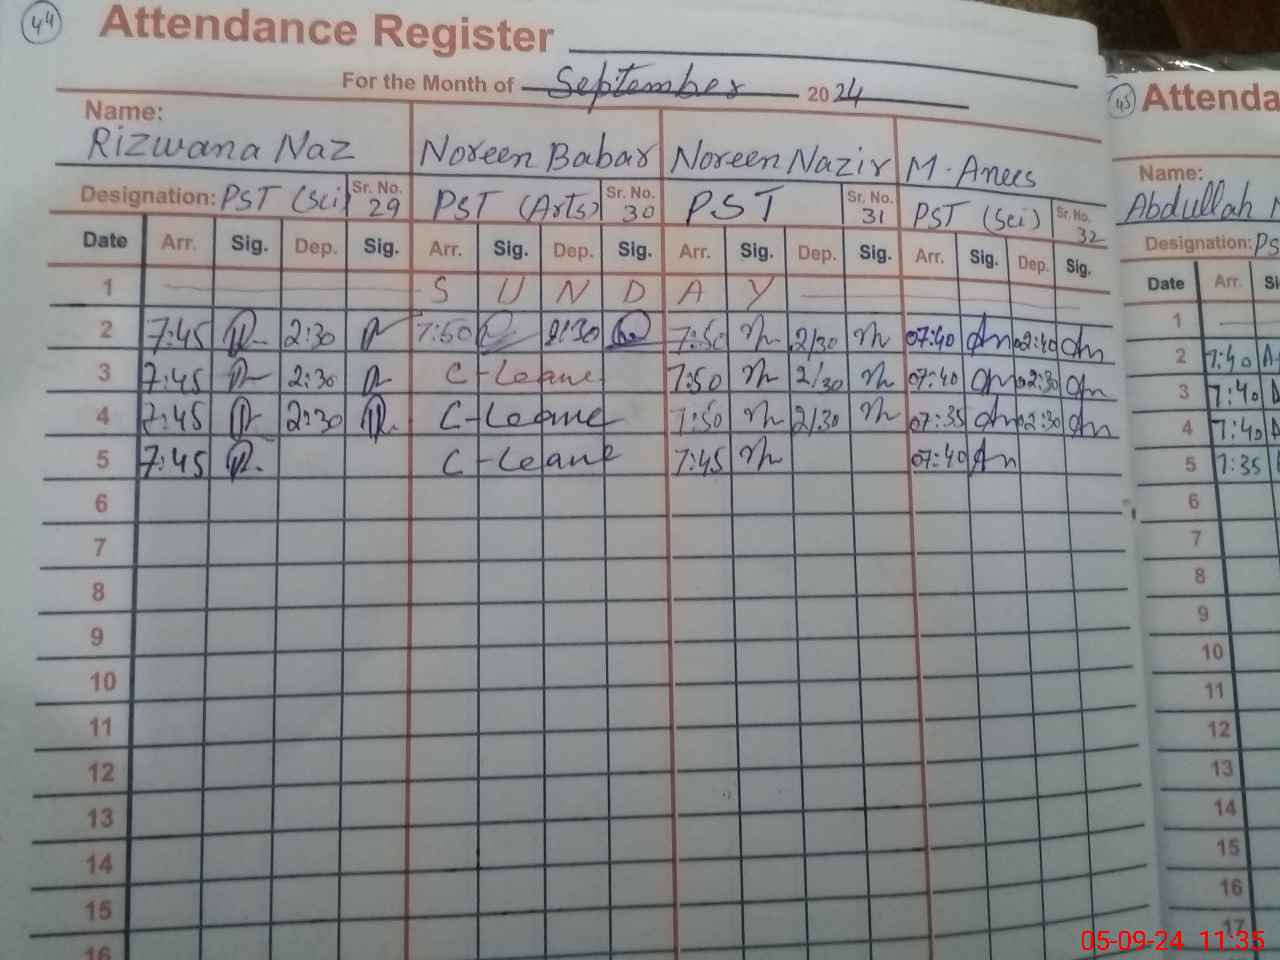 44 Attendance Register
For the Month of September 2024
Name:
Rizwana Naz Noreen Babar Noreen Nazir M. Anees
Designation: PST (Sci) Sr. No. 29 PST (Arts) Sr. No. 30 PST Sr. No. 31 PST (Sci) Sr. No. 32
Date Arr. Sig. Dep. Sig. Arr. Sig. Dep. Sig. Arr. Sig. Dep. Sig. Arr. Sig. Dep. Sig.
1 S U N D A Y
2 7:45 2:30 7:50 2:30 7:50 2/30 07:40 02:40
3 7:45 2:30 C-Leave 7:50 2/30 07:40 02:30
4 7:45 2:30 C-Leave 7:50 2/30 07:35 02:30
5 7:45 C-Leave 7:45 07:40
6
7
8
9
10
11
12
13
14
15
16
45 Attenda
Name:
Abdullah
Designation: PS
Date Arr.
1
2 7:40
3 7:40
4 7:40
5 7:35
6
7
8
9
10
11
12
13
14
15
16
17
05-09-24 11:35